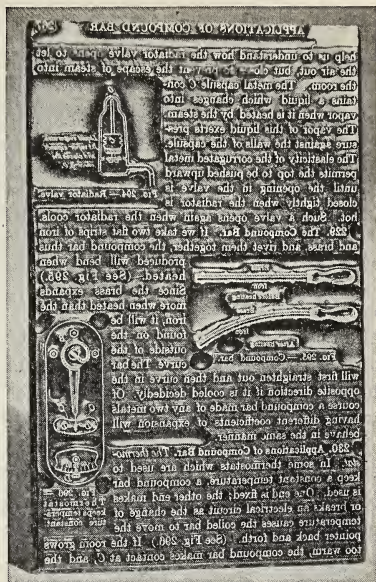 APPLICATIONS OF COMPOUND BAR
help us to understand how the radiator valve opens to let
the air out, but closes to prevent the escape of steam into
the room. The metal capsule con-
tains a liquid which changes into
vapor when it is heated by the steam
The vapor of this liquid exerts pres-
sure against the walls of the capsule
The elasticity of the corrugated metal
permits the top to be pushed upward
until the opening in the valve is
closed tightly when the radiator is
Fig. 294. — Radiator valve
hot. Such a valve opens again when the radiator cools.
229. The Compound Bar. If we take two flat strips of iron
and brass, and rivet them together, the compound bar thus
produced will bend when
heated. (See Fig. 295.)
Since the brass expands
more when heated than the
iron, it will be
found on the
outside of the
curve. The bar
Brass
Iron
Before heating
Brass
Iron
After heating
Fig. 295. — Compound bar.
will first straighten out and then curve in the
opposite direction if it is cooled decidedly. Of
course a compound bar made of any two metals
having different coefficients of expansion will
behave in the same manner.
230. Application of Compound Bar. The thermo-
stat. In some thermostats which are used to
keep a constant temperature, a compound bar
is used. One end is fixed; the other end makes
or breaks an electrical circuit as the change of
temperature causes the coiled bar to move the
pointer back and forth. (See Fig. 296.) If the room grows
too warm, the compound bar makes contact at C, and the
Fig. 296 —
Thermostat
keeps tempera-
ture constant.